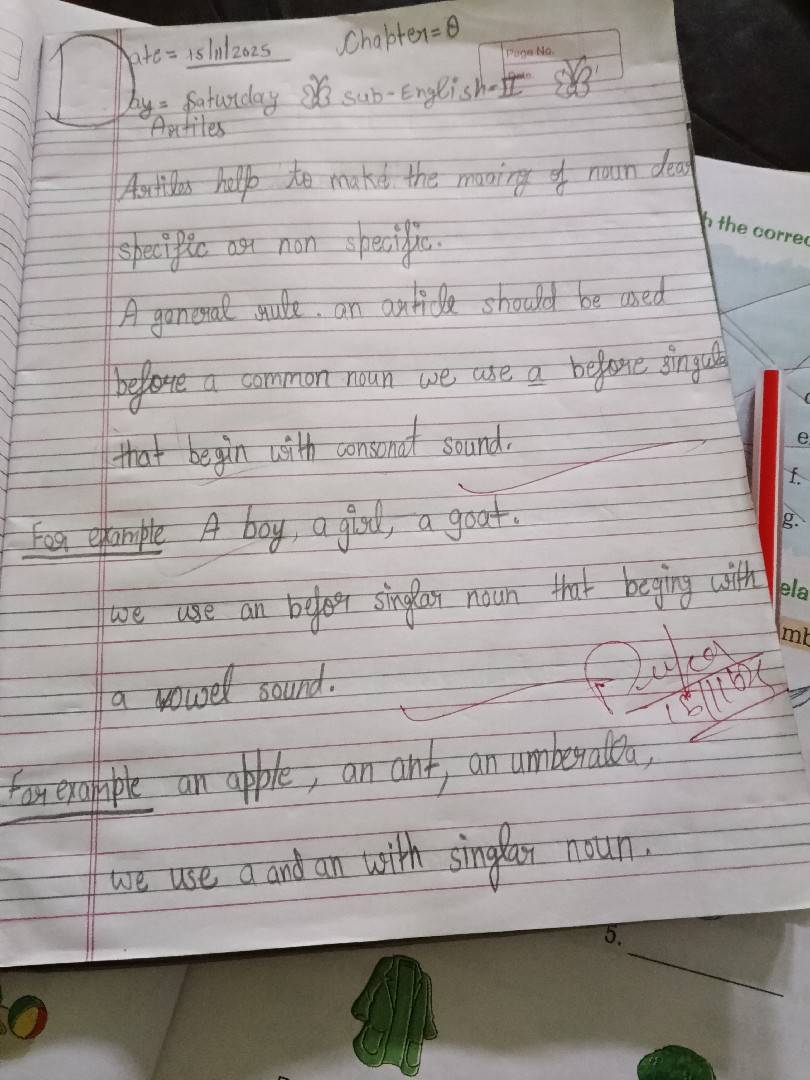 Date = 15/11/2025 Chapter = 8
Page No.
Date.
Day = Saturday Sub-English-II
Artiles
Artiles help to make the maaing of noun dear
specific or non specific.
A ganeral rule. an article should be used
before a common noun we use a before singula
that begin with consonat sound.
For example A boy, a girl, a goat.
we use an befor singlar noun that beging with
a vowel sound.
For example an apple, an ant, an umberalla,
we use a and an with singlar noun.
h the correc
e
f.
g.
ela
mb
5.